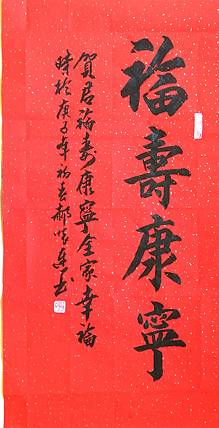 福壽康寧
賀君福壽康寧全家幸福
時於庚子年初春郝